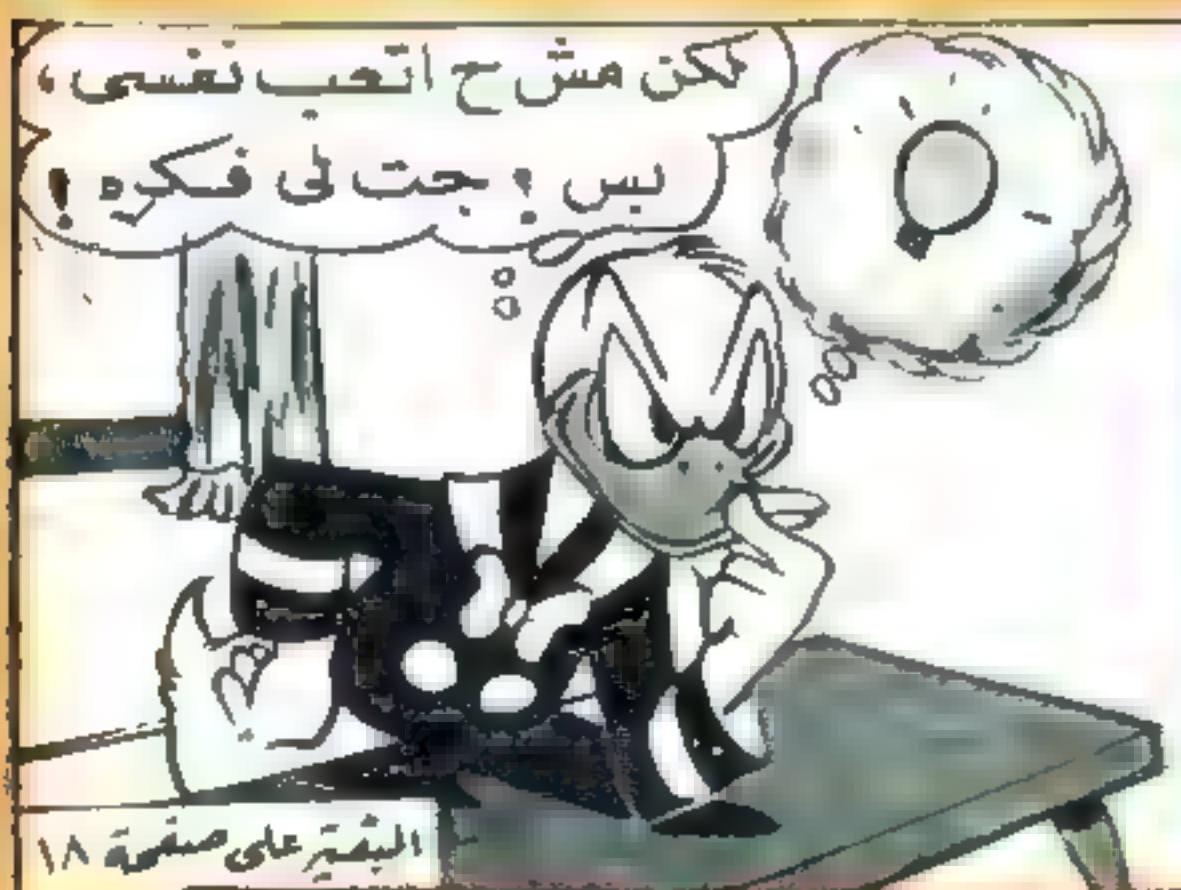 لكن مش ح اتعب نفسى ،
بس ! جت لى فكره !
البقية على صفحة ١٨